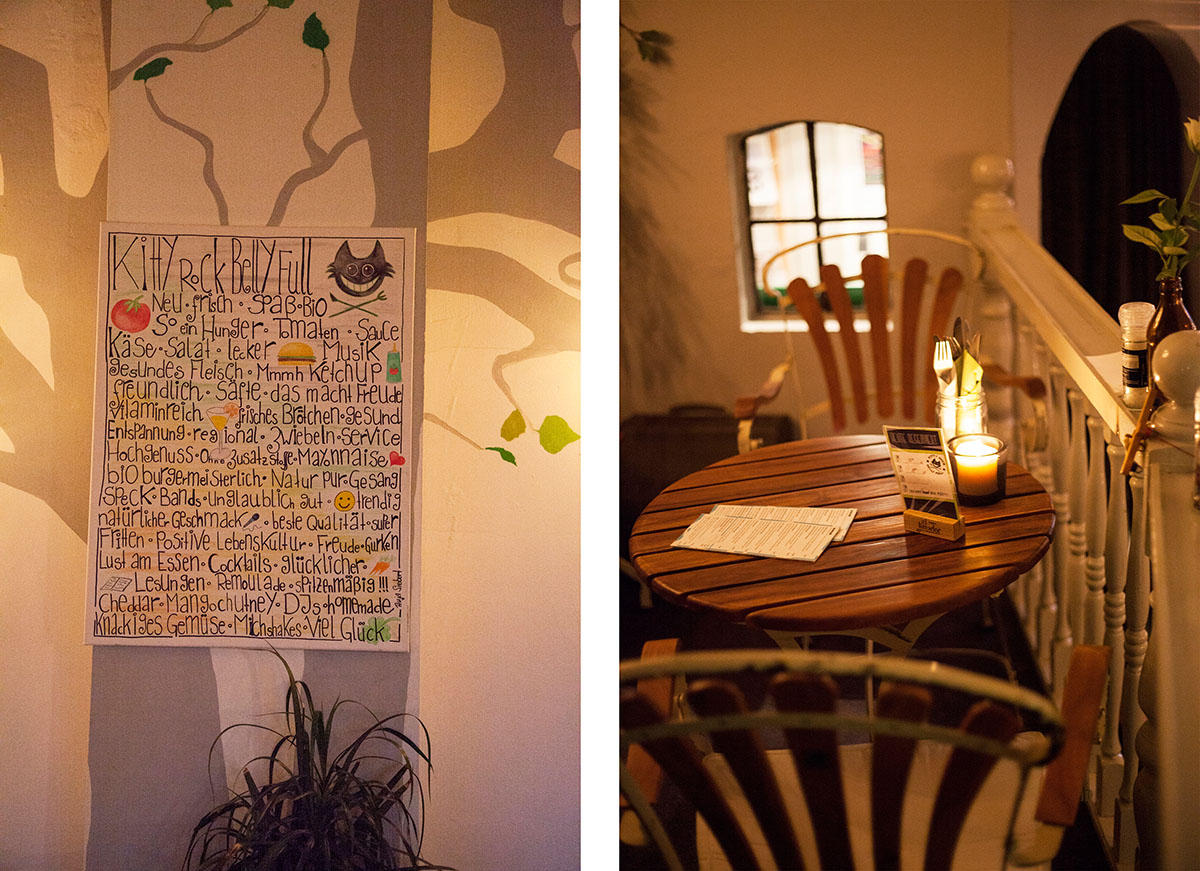 Kitty Rock Belly Full
Neu • frisch • Spaß • Bio
So ein Hunger • Tomaten • Sauce
Käse • Salat • lecker Musik
gesundes Fleisch • Mmmh Ketchup
freundlich • Säfte • das macht Freude
Vitaminreich frisches Brötchen • gesund
Entspannung • regional • Zwiebeln • Service
Hochgenuss • Ohne Zusatzstoffe • Mayonnaise
bio burgermeisterlich • Natur pur • Gesang
Speck • Bands • unglaublich gut • trendig
natürlicher Geschmack • beste Qualität • super
Fritten • Positive Lebenskultur • Freude • Gurken
Lust am Essen • Cocktails • glücklicher
Lesungen • Remoulade • spitzenmäßig !!!
Cheddar • Mangochutney • DJs • homemade
Knackiges Gemüse • Milchshakes • Viel Glück